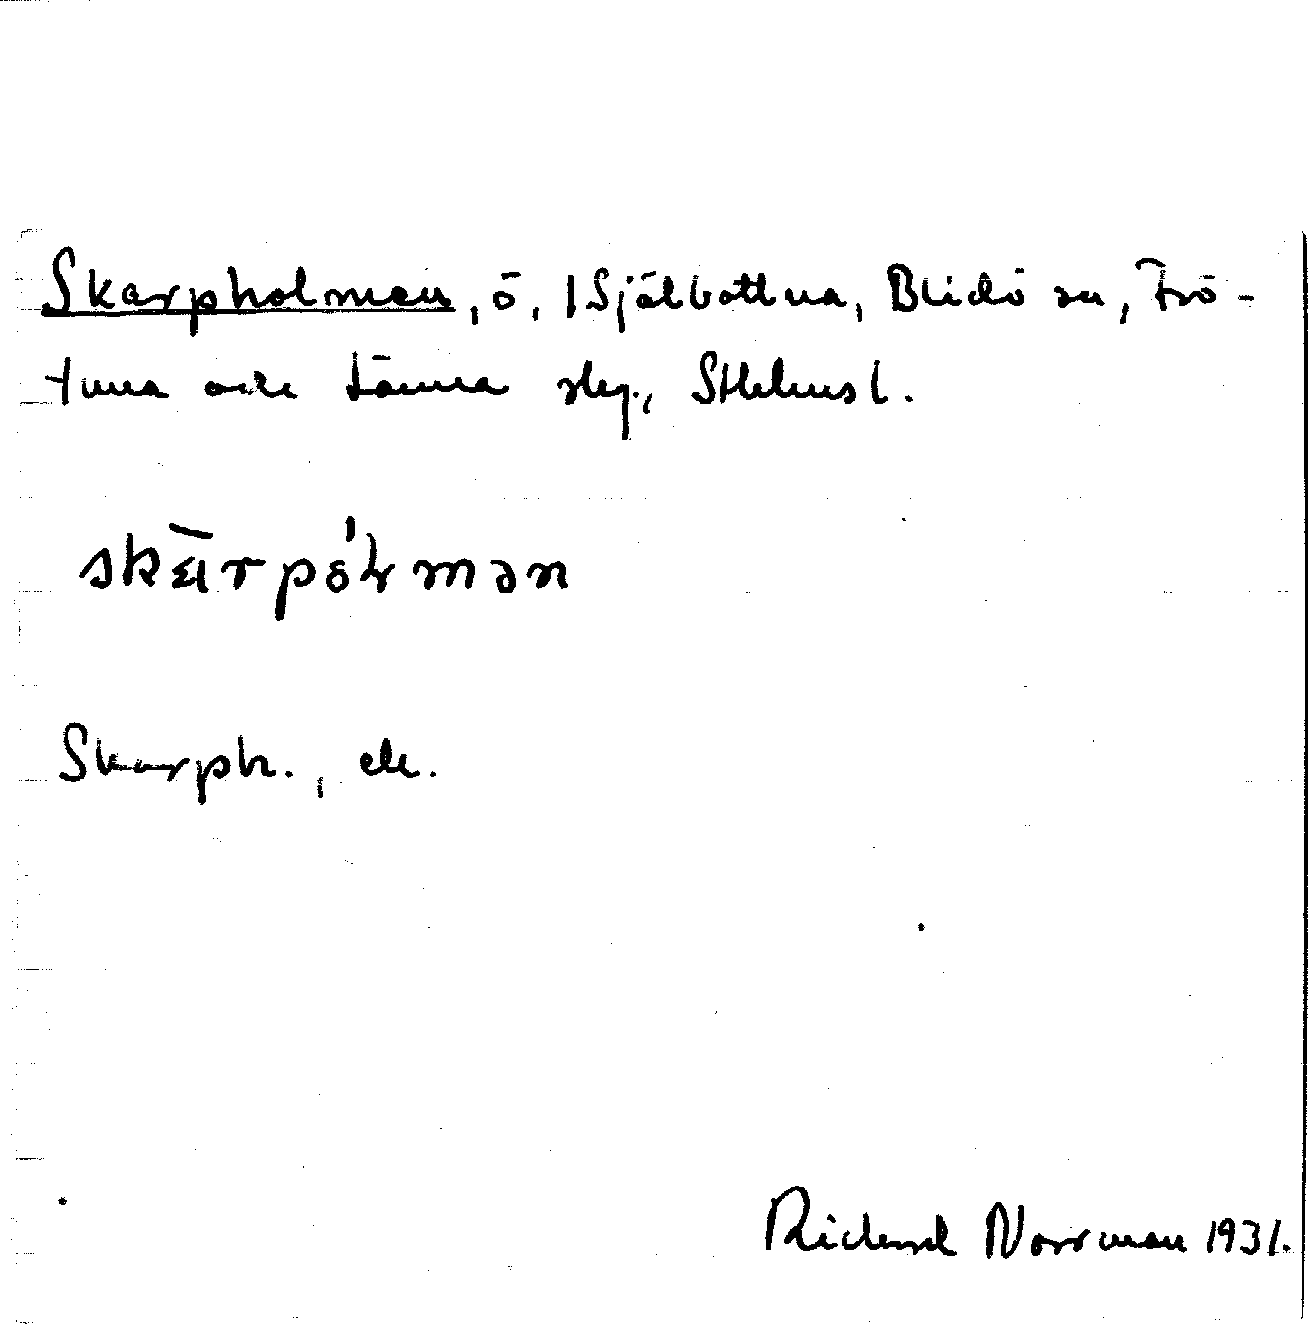 Skarpholmen, ö, i Själbottna, Blidö sn, Frö-
tuna och Länna slg., Sthlms l.
skärpóɫmən
Skarph., ek.
Rickard Norrman 1931.